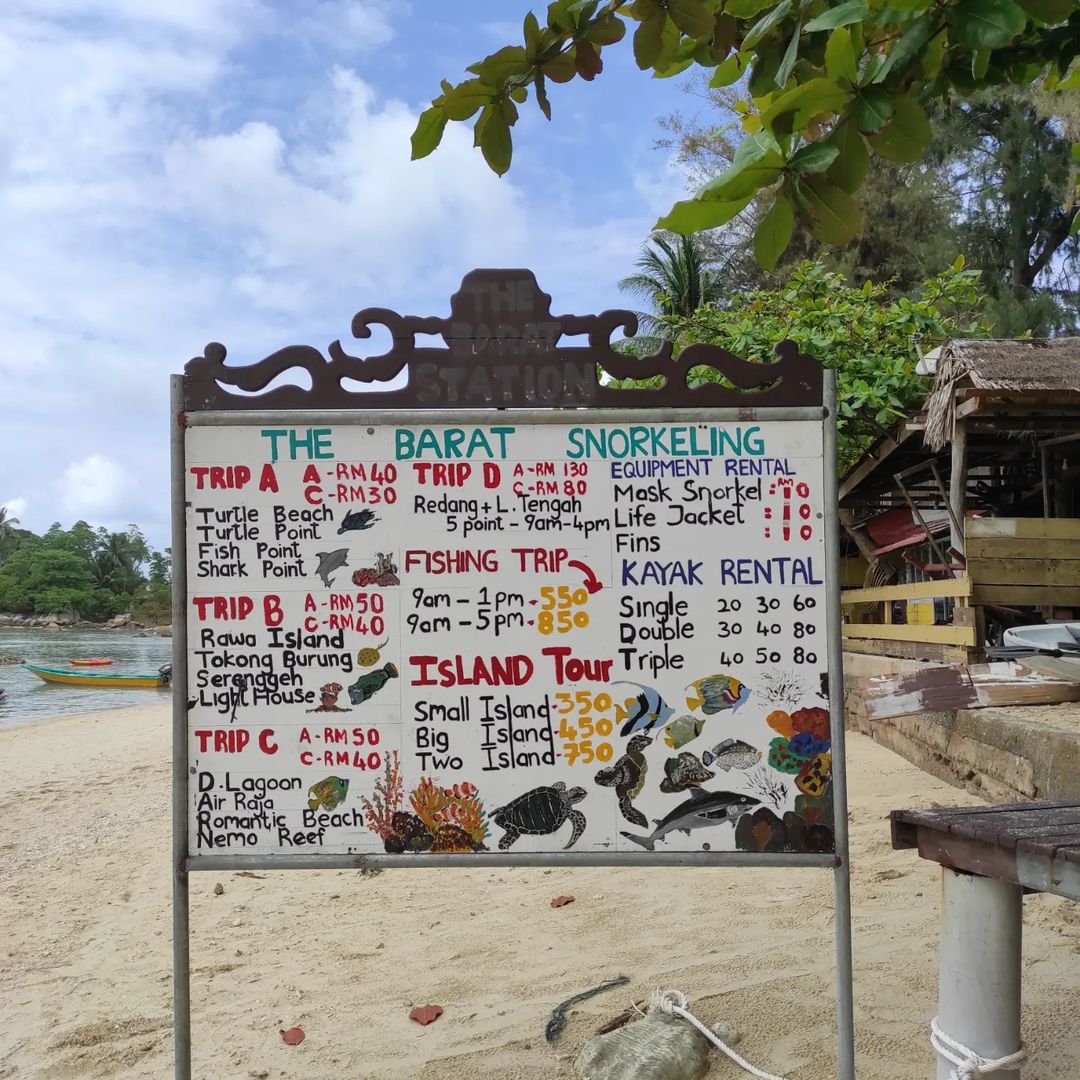 THE
BARAT
STATION
THE BARAT SNORKELING
TRIP A A-RM 40
C-RM 30
Turtle Beach
Turtle Point
Fish Point
Shark Point
TRIP B A-RM 50
C-RM 40
Rawa Island
Tokong Burung
Serenggeh
Light House
TRIP C A-RM 50
C-RM 40
D.Lagoon
Air Raja
Romantic Beach
Nemo Reef
TRIP D A-RM 130
C-RM 80
Redang + L. Tengah
5 point - 9am-4pm
FISHING TRIP
9am - 1pm - 550
9am - 5pm - 850
ISLAND Tour
Small Island - 350
Big Island - 450
Two Island - 750
EQUIPMENT RENTAL
RM
Mask Snorkel : 10
Life Jacket : 10
Fins : 10
KAYAK RENTAL
Single 20 30 60
Double 30 40 80
Triple 40 50 80